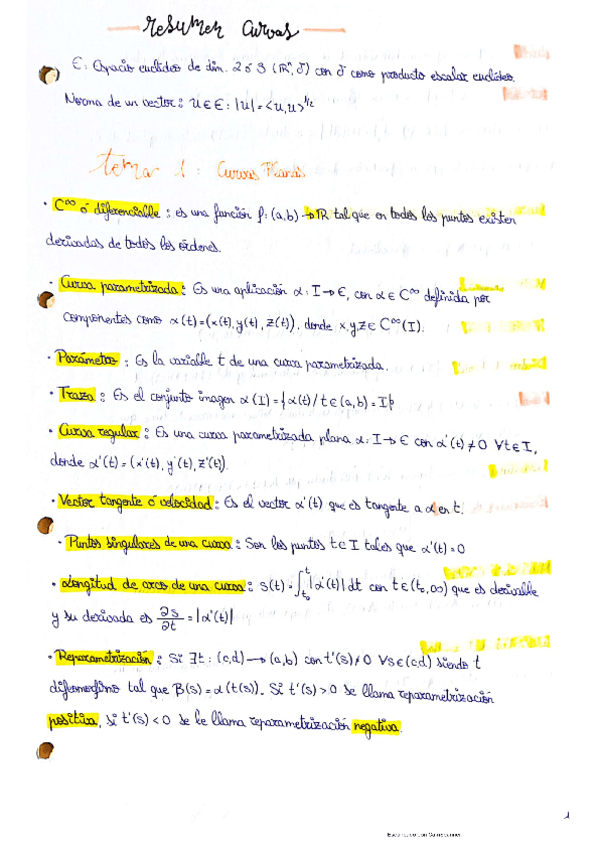 Resumen Curvas
E: Espacio euclídeo de dim. 2 ó 3 (ℝⁿ, δ) con δ como producto escalar euclídeo.
Norma de un vector: u∈E: |u|=<u,u>^1/2
tema 1: Curvas Planas
· C^∞ ó diferenciable: es una función f:(a,b)→ℝ tal que en todos los puntos existen
derivadas de todos los órdenes.
· Curva parametrizada: Es una aplicación α: I→E, con α∈C^∞ definida por
componentes como α(t)=(x(t),y(t),z(t)), donde x,y,z∈C^∞(I).
· Parámetro: Es la variable t de una curva parametrizada.
· Traza: Es el conjunto imagen α(I)={α(t)/t∈(a,b)=I}
· Curva regular: Es una curva parametrizada plana α: I→E con α'(t)≠0 ∀t∈I,
donde α'(t)=(x'(t),y'(t),z'(t)).
· Vector tangente ó velocidad: Es el vector α'(t) que es tangente a α en t.
· Puntos singulares de una curva: Son los puntos t∈I tales que α'(t)=0
· Longitud de arco de una curva: s(t)=∫_{t₀}^{t}|α'(t)|dt con t∈(t₀,∞) que es derivable
y su derivada es ∂s/∂t=|α'(t)|
· Reparametrización: Si ∃t:(c,d)→(a,b) con t'(s)≠0 ∀s∈(c,d) siendo t
difeomorfismo tal que β(s)=α(t(s)). Si t'(s)>0 se llama reparametrización
positiva, si t'(s)<0 se le llama reparametrización negativa.
1
Escaneado con CamScanner